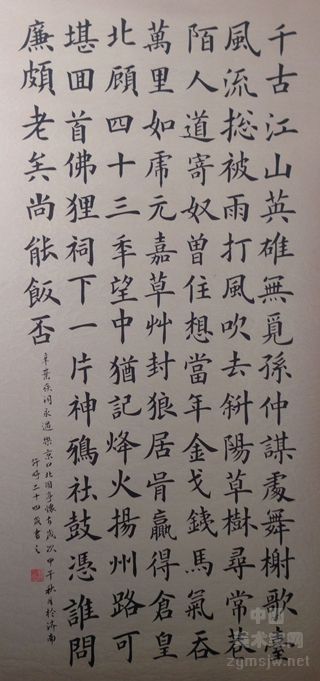 千古江山英雄無覓孫仲謀處舞榭歌臺
風流総被雨打風吹去斜陽草樹尋常巷
陌人道寄奴曾住想當年金戈鐵馬氣吞
萬里如虎元嘉草艸封狼居胥贏得倉皇
北顧四十三秊望中猶記烽火揚州路可
堪囬首佛狸祠下一片神鴉社鼓憑誰問
廉頗老矣尚能飯否
辛棄疾詞永遇樂京口北固亭懷古歲次甲午秋月於濟南
二十四歲書之
中山美术官网
zgmsjw.net.cn